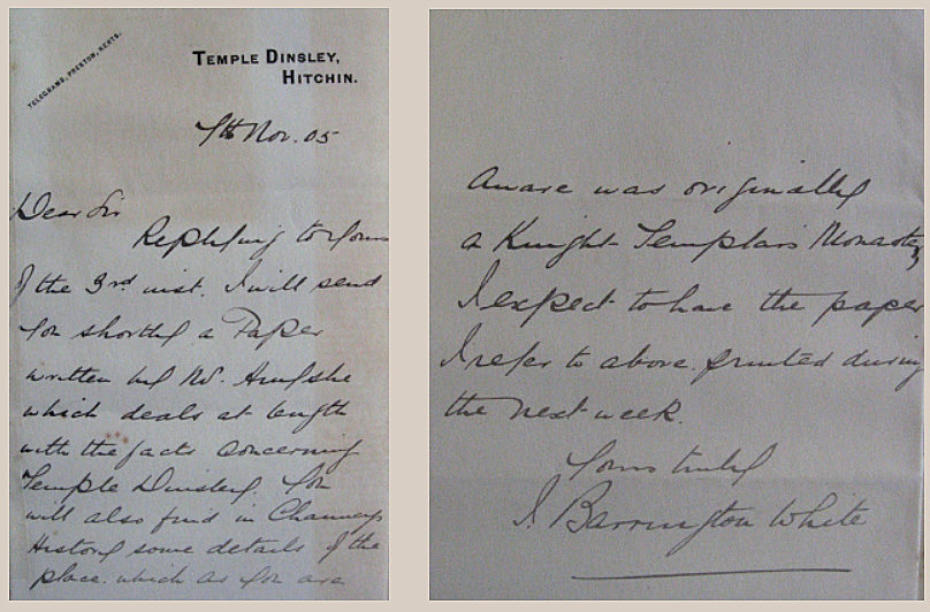 TELEGRAMS, PRESTON, HERTS.
TEMPLE DINSLEY,
HITCHIN.
7th Nov. 05
Dear Sir
Replying to Yours
of the 3rd inst. I will send
You shortly a Paper
written by
which deals at length
with the facts concerning
Temple Dinsley. You
will also find in Chauncys
History some details of the
place. which as You are
Aware was originally
a Knight Templars Monastery
I expect to have the paper
I refer to above. printed during
the next week.
Yours truly
J. Barrington White